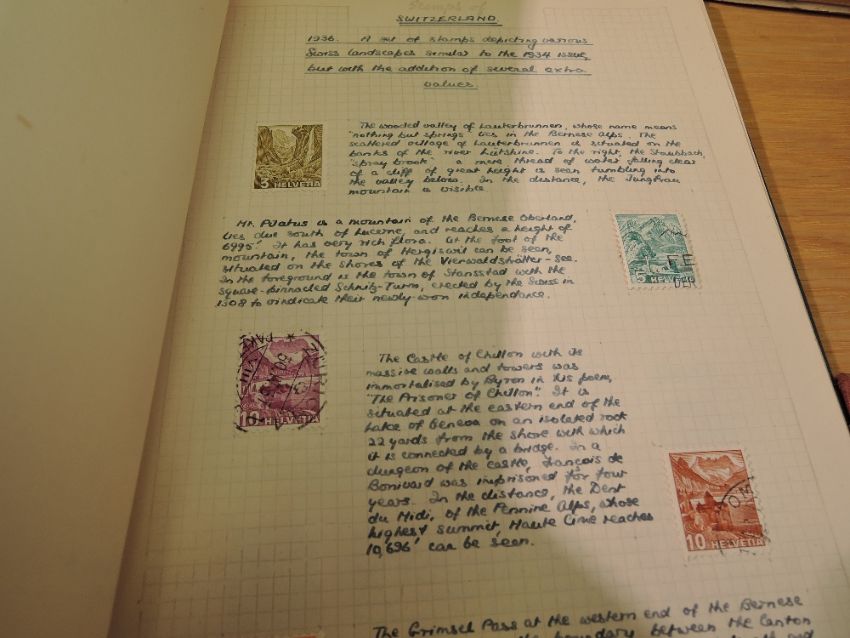 Stamps of
SWITZERLAND.
1936. A set of stamps depicting various
Swiss landscapes similar to the 1934 issue,
but with the addition of several extra
values.
The wooded valley of Lauterbrunnen, whose name means
"nothing but springs" lies in the Bernese Alps. The
scattered village of Lauterbrunnen is situated on the
banks of the river Lütshine. To the right, the Staubbach,
"spray brook" a mere thread of water falling clear
of a cliff of great height is seen tumbling into
the valley below. In the distance, the Jungfrau
mountain is visible.
3 HELVETIA
Mt. Pilatus is a mountain of the Bernese Oberland,
lies due south of Lucerne, and reaches a height of
6995'. It has very rich flora. At the foot of the
mountain, the town of Hergiswil can be seen,
situated on the shores of the Vierwaldstätter-See.
In the foreground is the town of Stansstad with the
square-pinnacled Schnitz-Turm, erected by the Swiss in
1308 to vindicate their newly-won independence.
5 HELVETIA
The Castle of Chillon with its
massive walls and towers was
immortalised by Byron in his poem,
"The Prisoner of Chillon". It is
situated at the eastern end of the
Lake of Geneva on an isolated rock
22 yards from the shore with which
it is connected by a bridge. In a
dungeon of the castle, François de
Bonivard was imprisoned for four
years. In the distance, the Dent
du Midi, of the Pennine Alps, whose
highest summit, Haute Cime reaches
10,696' can be seen.
10 HELVETIA
10 HELVETIA
The Grimsel Pass at the western end of the Bernese
the boundary between the Canton